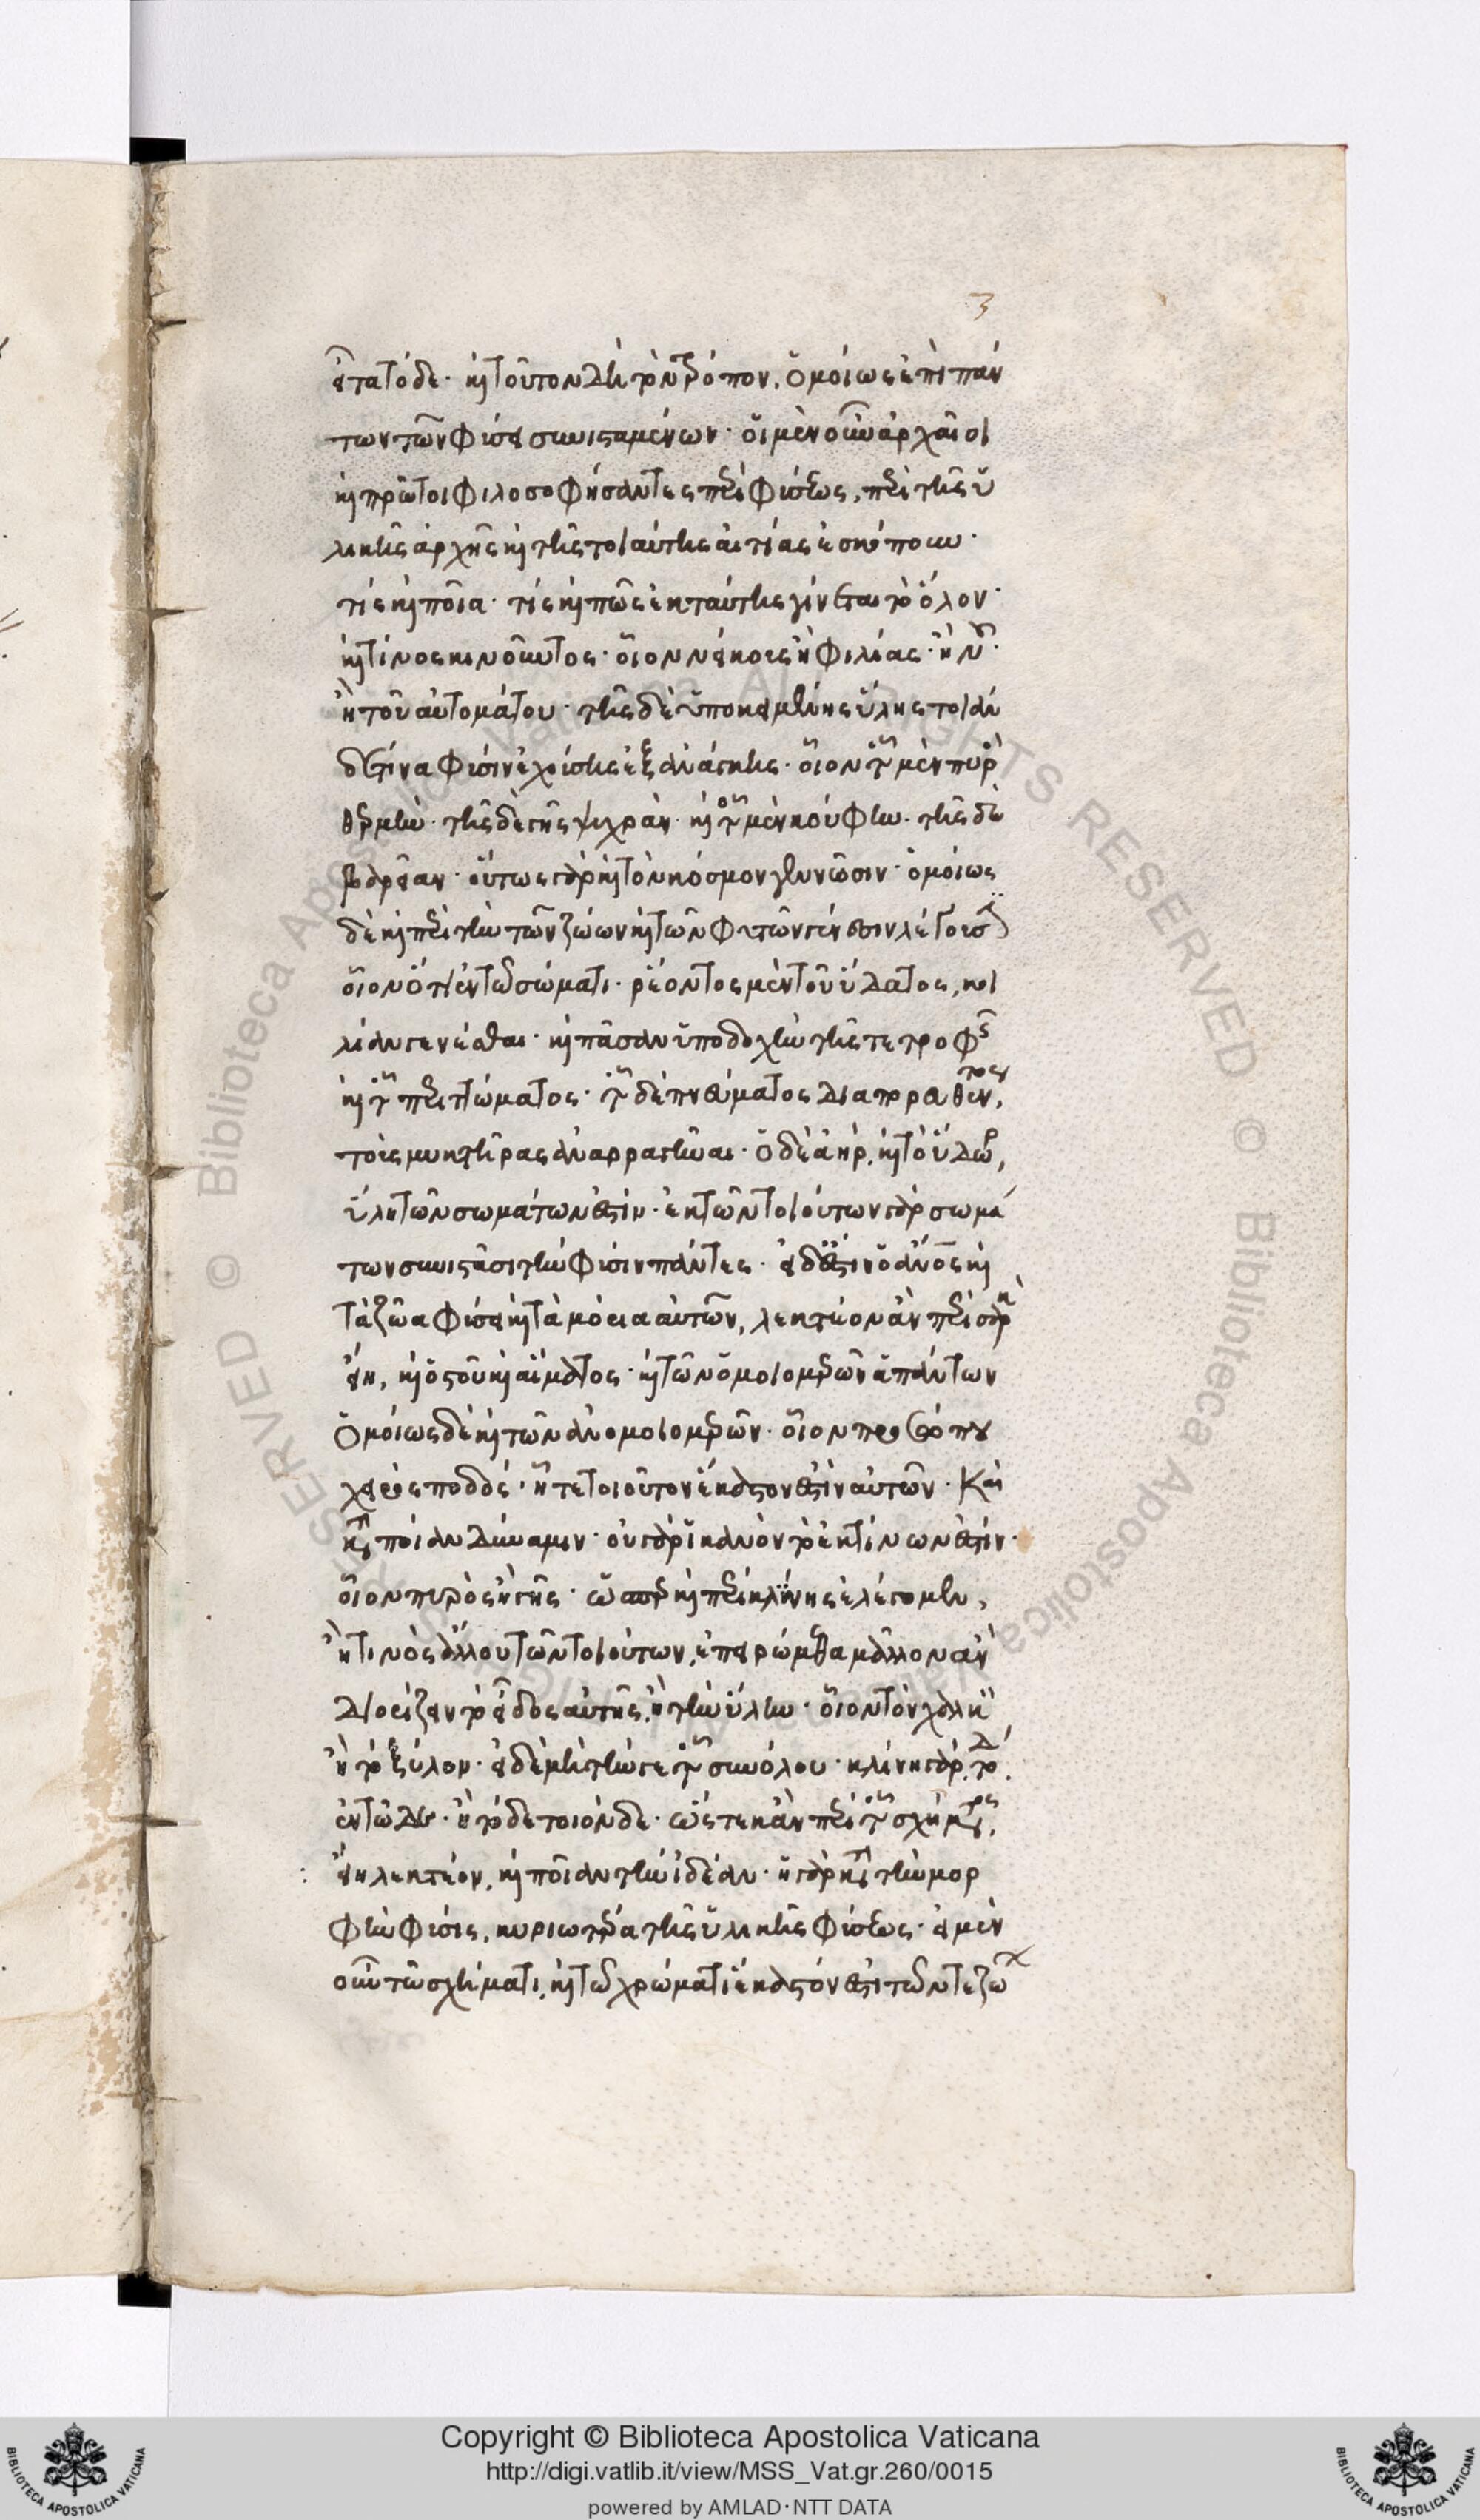 3
εἶτα τόδε· καὶ τοῦτον δὴ τὸν τρόπον. ὁμοίως ἐπὶ πάν
των τῶν φύσει συνισταμένων· οἱ μὲν οὖν ἀρχαῖοι
καὶ πρῶτοι φιλοσοφήσαντες περὶ φύσεως, περὶ τῆς ὑ
λικῆς ἀρχῆς καὶ τῆς τοιαύτης αἰτίας ἐσκόπουν·
τίς καὶ ποία· τίς καὶ πῶς ἐκ ταύτης γίνεται τὸ ὅλον·
καὶ τίνος κινοῦντος· οἷον νείκους ἢ φιλίας· ἢ νοῦ·
ἢ τοῦ αὐτομάτου· τῆς δὲ ὑποκειμένης ὕλης τοιάν
δε τινα φύσιν ἐχούσης ἐξ ἀνάγκης· οἷον τοῦ μὲν πυρὸς
θερμὴν· τῆς δὲ γῆς ψυχράν· καὶ τοῦ μὲν κούφην· τῆς δὲ
βαρεῖαν· οὕτως γὰρ καὶ τὸν κόσμον γεννῶσιν· ὁμοίως
δὲ καὶ περὶ τὴν τῶν ζώων καὶ τῶν φυτῶν γένεσιν λέγουσι
οἷον ὅτι ἐν τῷ σώματι· ῥέοντος μὲν τοῦ ὕδατος, κοι
λίαν γενέσθαι· καὶ πᾶσαν ὑποδοχὴν τῆς τε τροφῆς
καὶ τοῦ περιττώματος· τοῦ δὲ πνεύματος διαπορευθέντος,
τοὺς μυκτῆρας ἀναρραγῆναι· ὁ δὲ ἀὴρ, καὶ τὸ ὕδωρ,
ὕλη τῶν σωμάτων ἐστίν· ἐκ τῶν τοιούτων γὰρ σωμά
των συνιστᾶσι τὴν φύσιν πάντες· εἰ δ' ἔστιν ὁ ἄνος καὶ
τὰ ζῶα φύσει καὶ τὰ μόρια αὐτῶν, λεκτέον ἂν περὶ σαρκὸς
εἴη, καὶ ὀστοῦ καὶ αἵματος· καὶ τῶν ὁμοιομερῶν ἁπάντων
ὁμοίως δὲ καὶ τῶν ἀνομοιομερῶν· οἷον προσώπου
χειρὸς ποδός· ᾗ τε τοιοῦτον ἕκαστόν ἐστιν αὐτῶν· Καὶ
κατὰ ποίαν δύναμιν· οὐ γὰρ ἱκανὸν τὸ ἐκ τίνων ἐστίν·
οἷον πυρὸς ἢ γῆς· ὥσπερ καὶ περὶ κλίνης ἐλέγομεν,
ἤ τινος ἄλλου τῶν τοιούτων, ἐπειρώμεθα μᾶλλον ἂν
διορίζειν τὸ εἶδος αὐτῆς, ἢ τὴν ὕλην· οἷον τὸν χαλκὸν
ἢ τὸ ξύλον· εἰ δὲ μὴ τήν γε τοῦ συνόλου· κλίνη γὰρ, τόδε
ἐν τῶδε· ἢ τόδε τοιόνδε· ὥστε κἂν περὶ τοῦ σχήματος,
εἴη λεκτέον, καὶ ποῖαν τὴν ἰδέαν· ἡ γὰρ κατὰ τὴν μορ
φὴν φύσις, κυριωτέρα τῆς ὑλικῆς φύσεως· εἰ μὲν
οὖν τῷ σχήματι, καὶ τῷ χρώματι ἕκαστόν ἐστι τῶν τε ζώων
Copyright © Biblioteca Apostolica Vaticana
http://digi.vatlib.it/view/MSS_Vat.gr.260/0015
powered by AMLAD·NTT DATA